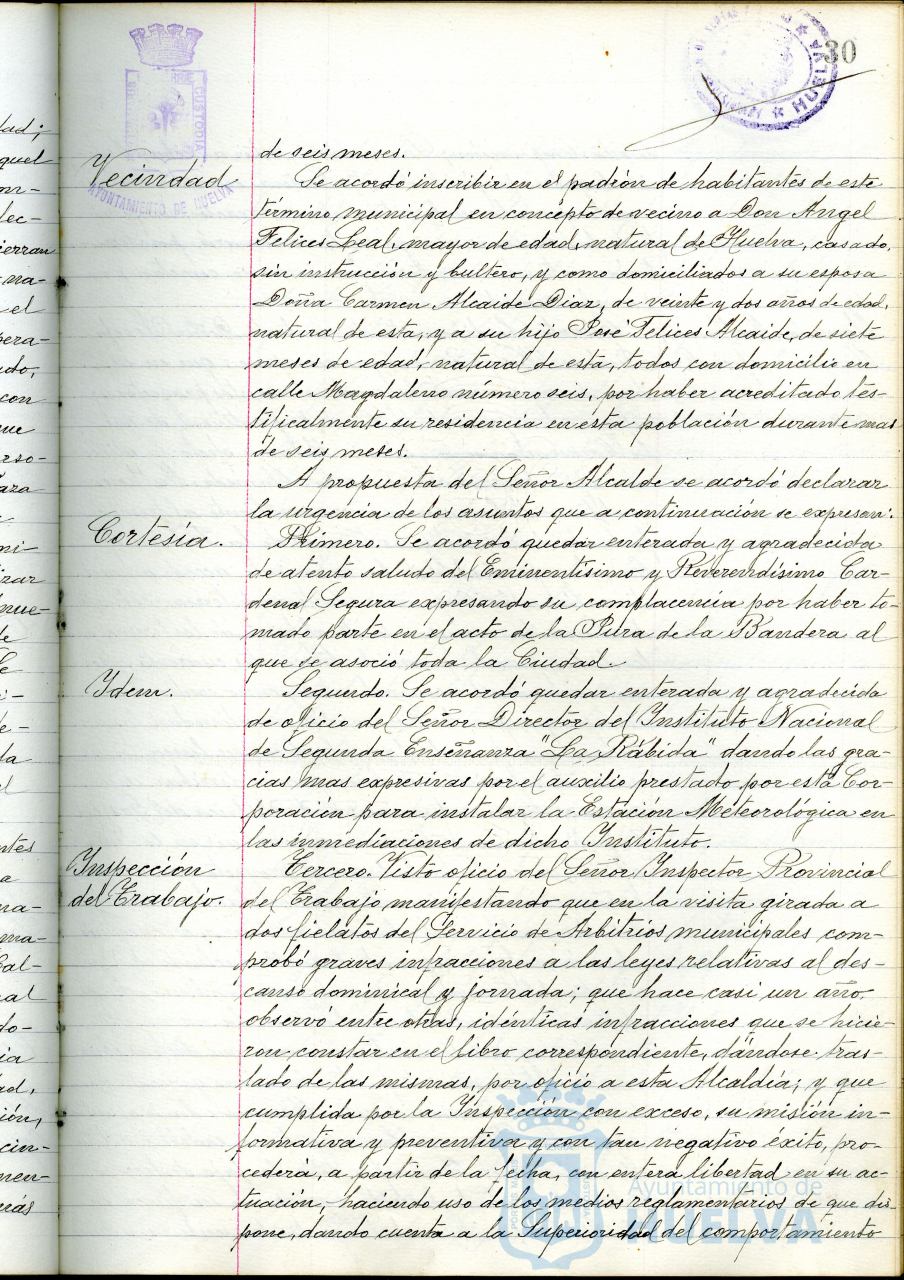 30
HUELVA
CUSTODIA
AYUNTAMIENTO DE HUELVA
de seis meses.
Vecindad
Se acordó inscribir en el padrón de habitantes de este
término municipal en concepto de vecino a Don Angel
Felices Leal, mayor de edad, natural de Huelva, casado,
sin instrucción y bultero, y como domiciliados a su esposa
Doña Carmen Alcaide Diaz, de veinte y dos años de edad,
natural de esta, y a su hijo José Felices Alcaide, de siete
meses de edad, natural de esta, todos con domicilio en
calle Magdaleno número seis, por haber acreditado tes-
tificalmente su residencia en esta población durante mas
de seis meses.
A propuesta del Señor Alcalde se acordó declarar
la urgencia de los asuntos que a continuación se expresan:
Cortesía.
Primero. Se acordó quedar enterada y agradecida
de atento saludo del Eminentísimo y Reverendísimo Car-
denal Segura expresando su complacencia por haber to-
mado parte en el acto de la Jura de la Bandera al
que se asoció toda la Ciudad.
Ydem.
Segundo. Se acordó quedar enterada y agradecida
de oficio del Señor Director del Instituto Nacional
de Segunda Enseñanza "La Rábida" dando las gra-
cias mas expresivas por el auxilio prestado por esta Cor-
poración para instalar la Estación Meteorológica en
las inmediaciones de dicho Instituto.
Inspección
del Trabajo.
Tercero. Visto oficio del Señor Inspector Provincial
del Trabajo manifestando que en la visita girada a
dos fielatos del Servicio de Arbitrios municipales com-
probó graves infracciones a las leyes relativas al des-
canso dominical y jornada; que hace casi un año
observó entre otras, idénticas infracciones que se hicie-
ron constar en el libro correspondiente, dándose tras-
lado de las mismas, por oficio a esta Alcaldía; y que
cumplida por la Inspección con exceso, su misión in-
formativa y preventiva y con tan negativo éxito, pro-
cederá, a partir de la fecha, con entera libertad en su ac-
tuación, haciendo uso de los medios reglamentarios de que dis-
pone, dando cuenta a la Superioridad del comportamiento
Ayuntamiento de
HUELVA